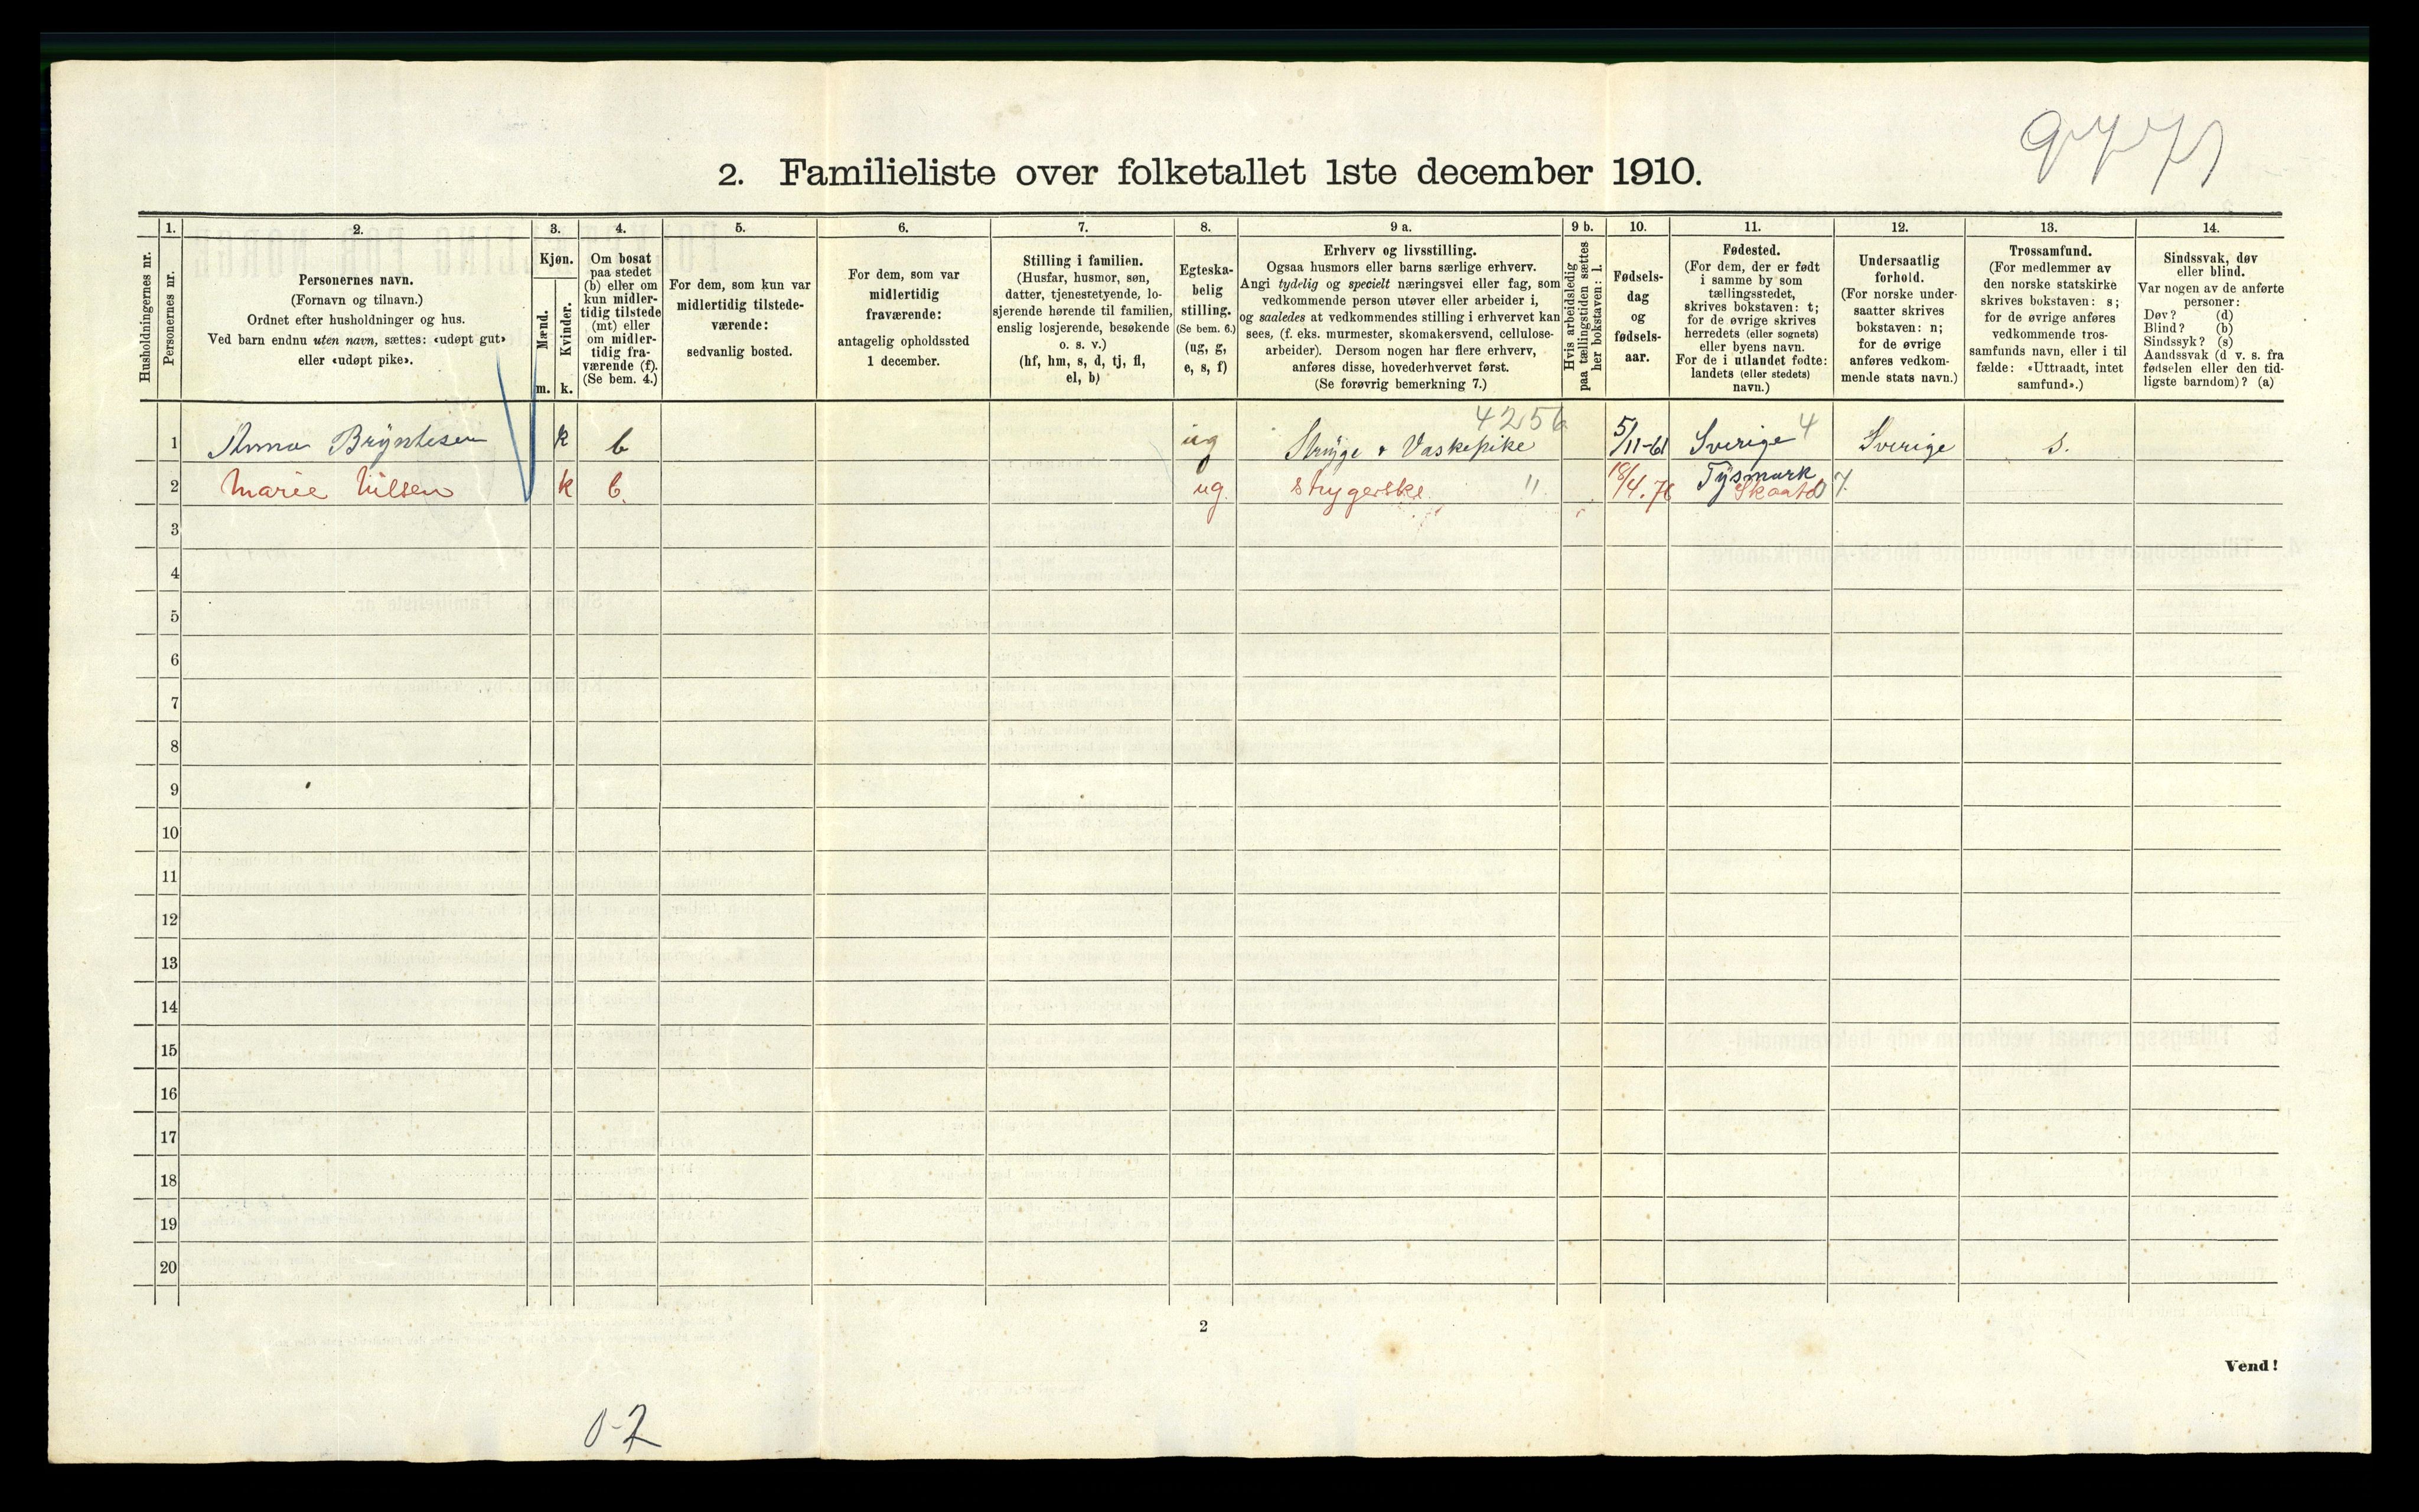 2. Familieliste over folketallet 1ste december 1910.
Husholdningernes nr.
1.
Personernes nr.
2.
Personernes navn.
(Fornavn og tilnavn.)
Ordnet efter husholdninger og hus.
Ved barn endnu uten navn, sættes: «udøpt gut»
eller «udøpt pike».
3.
Kjøn.
Mænd.
m.
Kvinder.
k.
4.
Om bosat
paa stedet
(b) eller om
kun midler-
tidig tilstede
(mt) eller
om midler-
tidig fra-
værende (f).
(Se bem. 4.)
5.
For dem, som kun var
midlertidig tilstede-
værende:
sedvanlig bosted.
6.
For dem, som var
midlertidig
fraværende:
antagelig opholdssted
1 december.
7.
Stilling i familien.
(Husfar, husmor, søn,
datter, tjenestetyende, lo-
sjerende hørende til familien,
enslig losjerende, besøkende
o. s. v.)
(hf, hm, s, d, tj, fl,
el, b)
8.
Egteska-
belig
stilling.
(Se bem. 6.)
(ug, g,
e, s, f)
9 a.
Erhverv og livsstilling.
Ogsaa husmors eller barns særlige erhverv.
Angi tydelig og specielt næringsvei eller fag, som
vedkommende person utøver eller arbeider i,
og saaledes at vedkommendes stilling i erhvervet kan
sees, (f. eks. murmester, skomakersvend, cellulose-
arbeider). Dersom nogen har flere erhverv,
anføres disse, hovederhvervet først.
(Se forøvrig bemerkning 7.)
9 b.
Hvis arbeidsledig
paa tællingstiden sættes
her bokstaven: l.
10.
Fødsels-
dag
og
fødsels-
aar.
11.
Fødested.
(For dem, der er født
i samme by som
tællingsstedet,
skrives bokstaven: t;
for de øvrige skrives
herredets (eller sognets)
eller byens navn.
For de i utlandet fødte:
landets (eller stedets)
navn.)
12.
Undersaatlig
forhold.
(For norske under-
saatter skrives
bokstaven: n;
for de øvrige
anføres vedkom-
mende stats navn.)
13.
Trossamfund.
(For medlemmer av
den norske statskirke
skrives bokstaven: s;
for de øvrige anføres
vedkommende tros-
samfunds navn, eller i til
fælde: «Uttraadt, intet
samfund».)
14.
Sindssvak, døv
eller blind.
Var nogen av de anførte
personer:
Døv? (d)
Blind? (b)
Sindssyk? (s)
Aandssvak (d v. s. fra
fødselen eller den tid-
ligste barndom)? (a)
1 Anna Bryntesen k b ug Stryge & Vaskepike 5/11-61 Sverige 4 Sverige s.
2 Marie Nilsen k b. ug strygerske " 18/4.76 Tysmark
3
4
5
6
7
8
9
10
11
12
13
14
15
16
17
18
19
20
2
Vend!
0-2